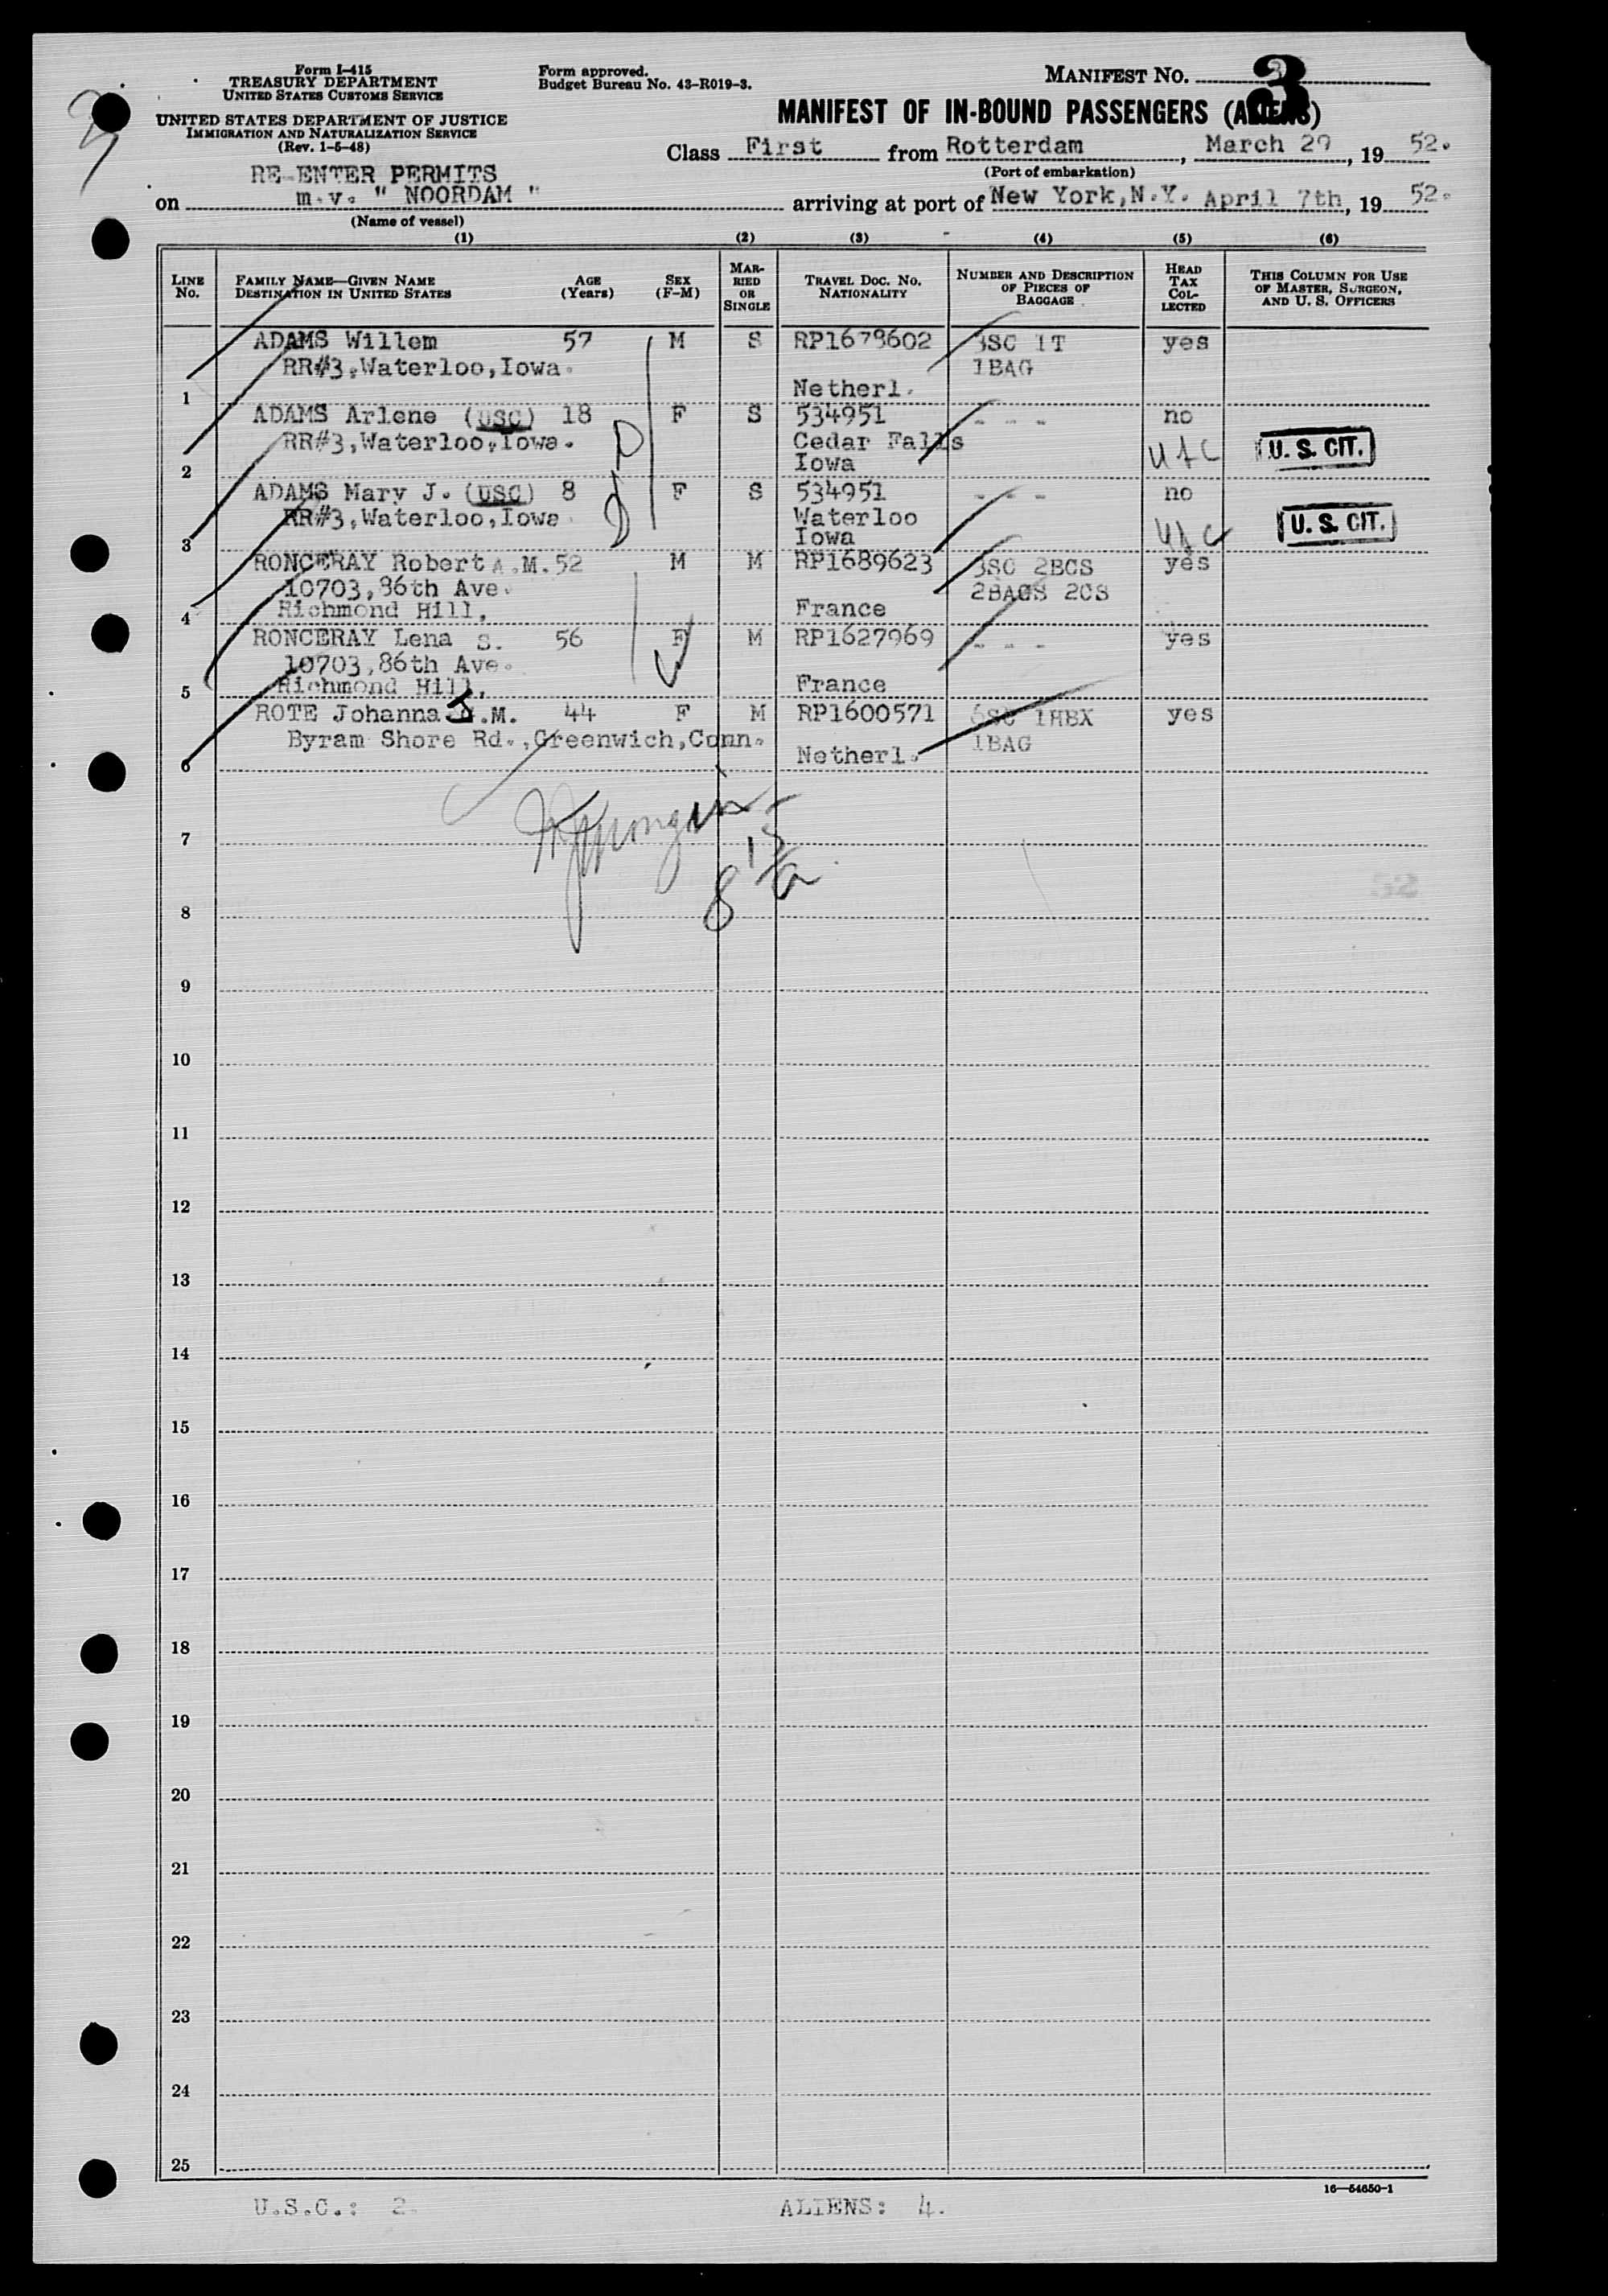 Form I-415
TREASURY DEPARTMENT
UNITED STATES CUSTOMS SERVICE
UNITED STATES DEPARTMENT OF JUSTICE
IMMIGRATION AND NATURALIZATION SERVICE
(Rev. 1-5-48)
Form approved.
Budget Bureau No. 43-R019-3.
MANIFEST NO. 3
MANIFEST OF IN-BOUND PASSENGERS (ALIENS)
Class First from Rotterdam, March 29, 1952.
(Port of embarkation)
RE-ENTER PERMITS
on m.v. " NOORDAM " arriving at port of New York, N.Y. April 7th, 1952.
(Name of vessel)
(1) (2) (3) (4) (5) (6)
LINE No.
FAMILY NAME—GIVEN NAME
DESTINATION IN UNITED STATES
AGE (Years)
SEX (F-M)
MARRIED OR SINGLE
TRAVEL DOC. NO.
NATIONALITY
NUMBER AND DESCRIPTION OF PIECES OF BAGGAGE
HEAD TAX COLLECTED
THIS COLUMN FOR USE OF MASTER, SURGEON, AND U. S. OFFICERS
ADAMS Willem 57 M S RP1678602 3SC 1T yes
RR#3,Waterloo,Iowa. 1BAG
1 Netherl.
ADAMS Arlene (USC) 18 F S 534951 - - - no
RR#3,Waterloo,Iowa. Cedar Falls U. S. CIT.
2 Iowa
ADAMS Mary J. (USC) 8 F S 534951 - - - no
RR#3,Waterloo,Iowa Waterloo U. S. CIT.
3 Iowa
RONCERAY Robert A.M. 52 M M RP1689623 3SC 2BCS yes
10703,86th Ave. 2BAGS 2CS
4 Richmond Hill, France
RONCERAY Lena S. 56 F M RP1627969 - - - yes
10703,86th Ave.
5 Richmond Hill, France
ROTE Johanna J.M. 44 F M RP1600571 6SC 1HBX yes
Byram Shore Rd.,Greenwich,Conn. 1BAG
6 Netherl.
7
8
9
10
11
12
13
14
15
16
17
18
19
20
21
22
23
24
25
16—54650-1
U.S.C.: 2. ALIENS: 4.